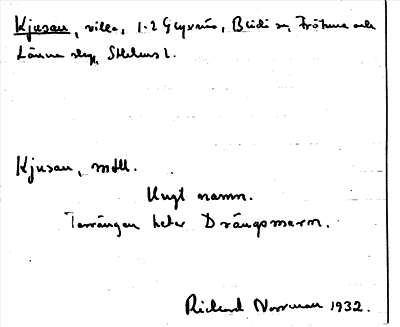 Kjusan, villa, 1·2 Glyxnäs, Blidö sn, Frötuna och
Länna skg, Sthlms l.
Kjusan, mdl.
Ungt namn.
Terrängen heter Drängsmarn.
Rickard Norrman 1932.